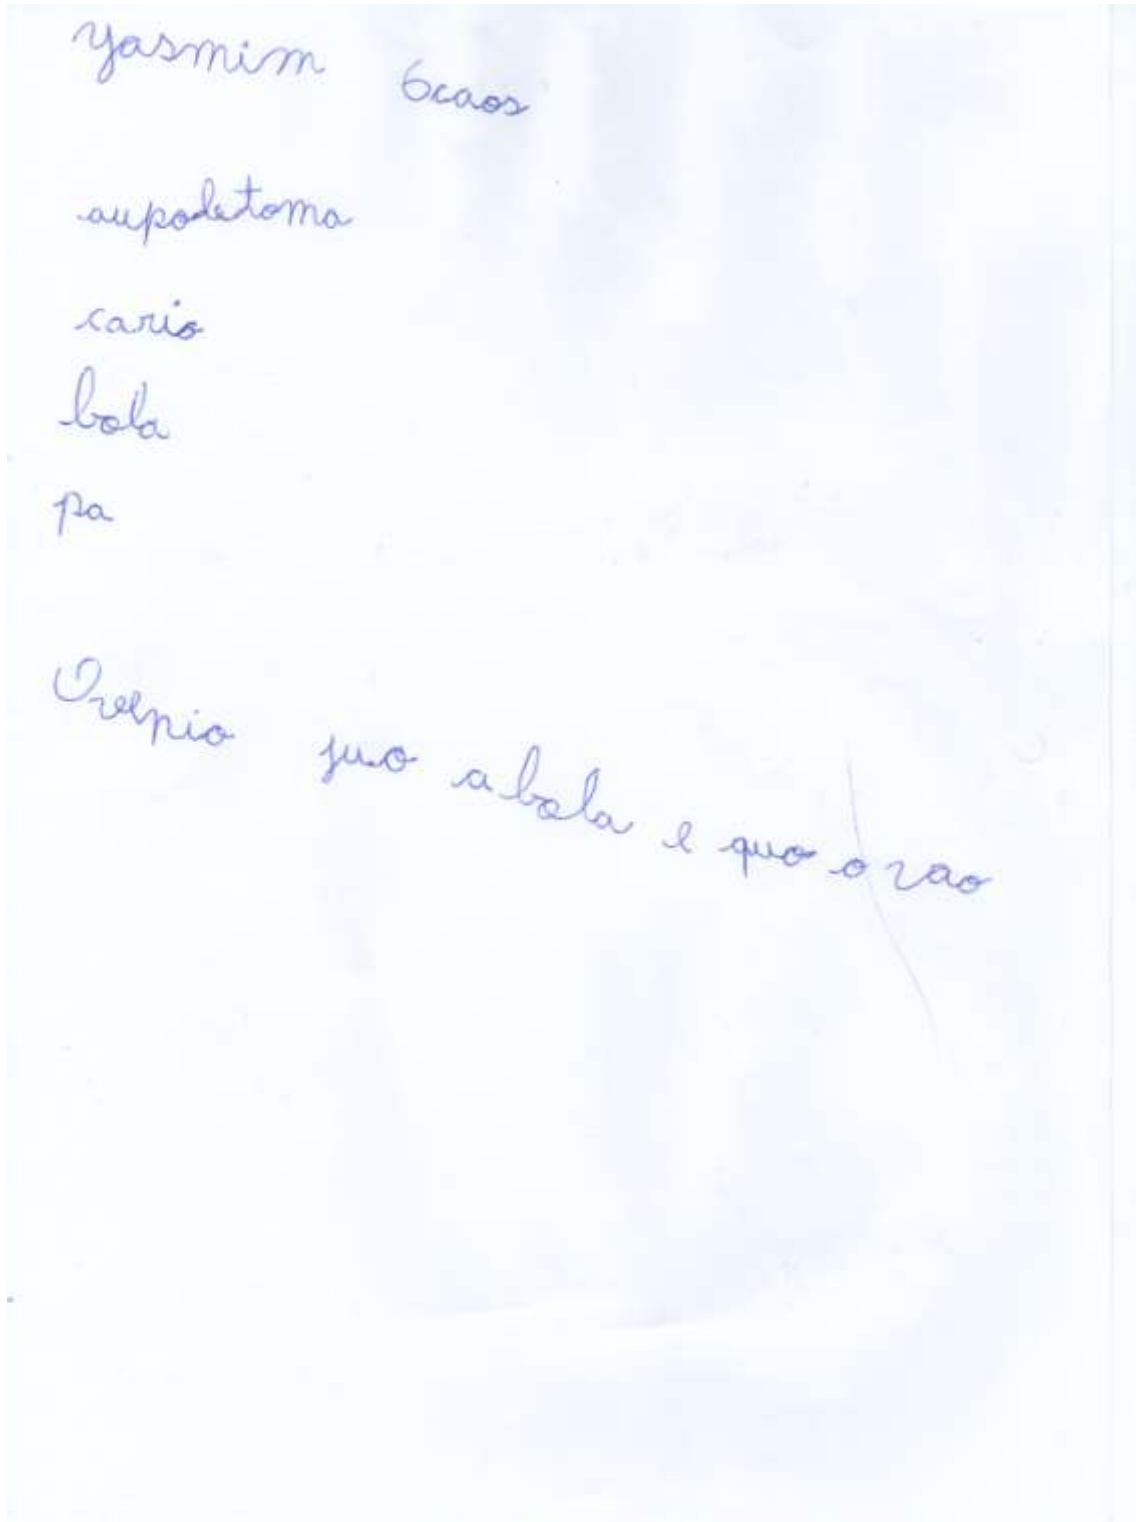 Yasmim 6caos
aupodetoma
cario
bola
pa
Ovepio juo a bola e quo o vao